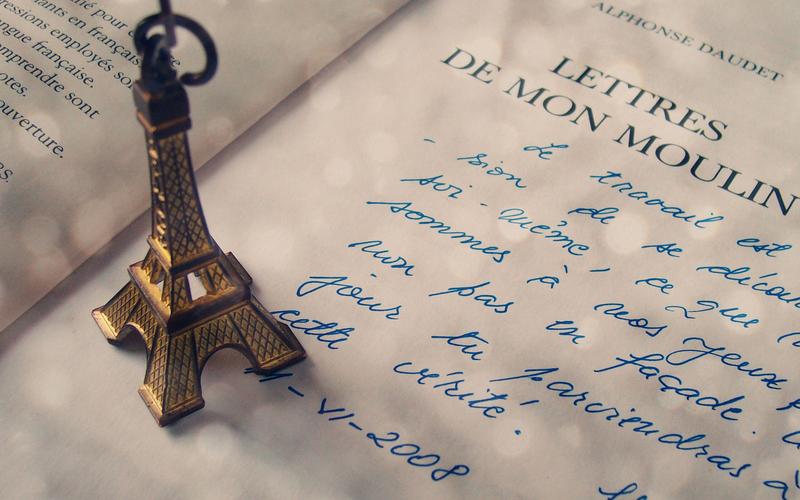 é pour
ants en français
ressions employés so
ngue française.
omprendre sont
otes.
ouverture.
rs.
ALPHONSE DAUDET
LETTRES
DE MON MOULIN
Le travail est
- sion de se décou
soi-même, ce que
sommes à nos yeux
non pas en façade.
jour tu parviendras à
cette vérité.
11-VI-2008